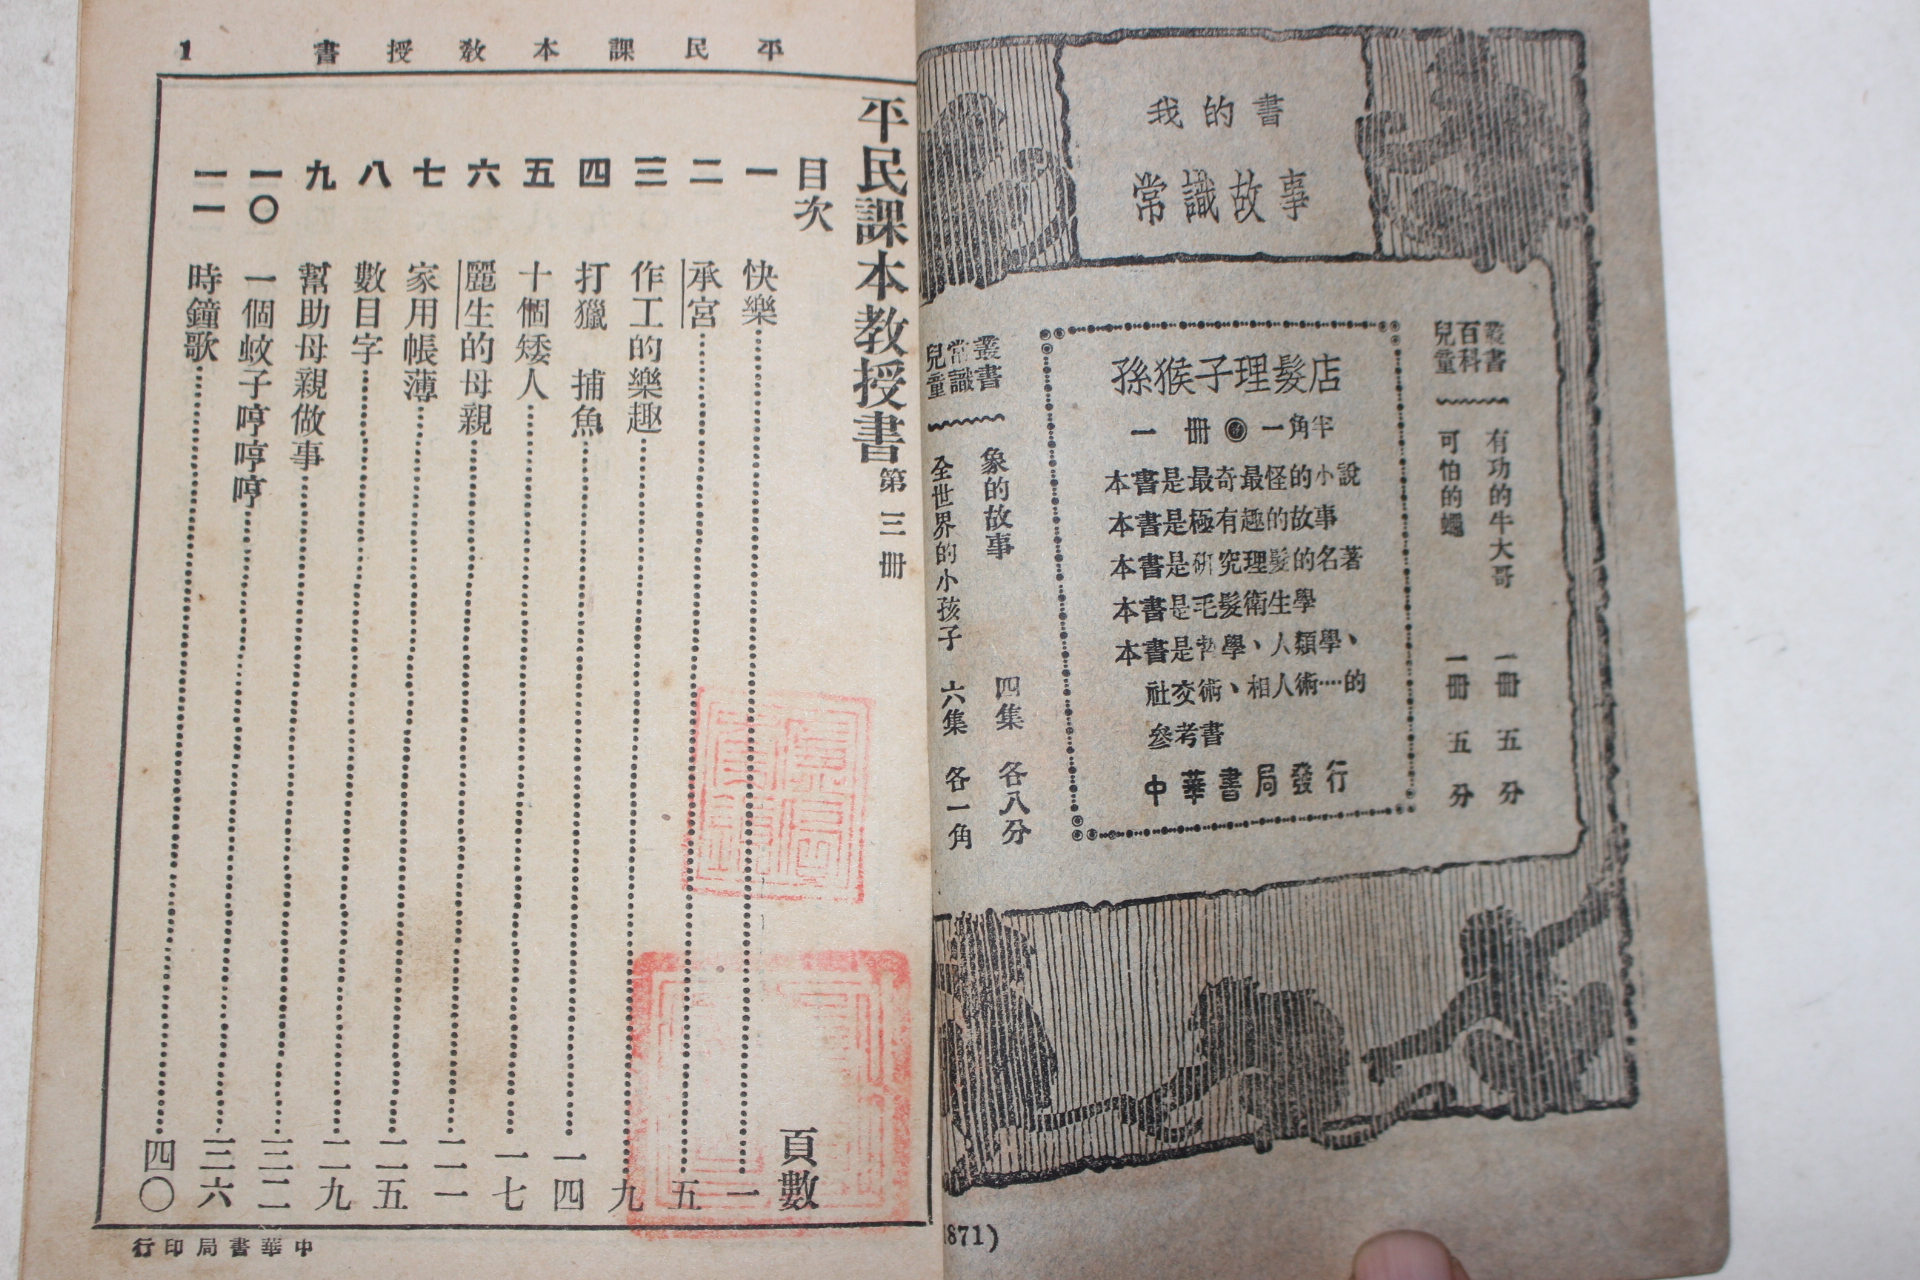 我的書
常識故事
兒童百科叢書
有功的牛大哥 一冊 五分
可怕的蠅 一冊 五分
孫猴子理髮店
一冊 一角半
本書是最奇最怪的小說
本書是極有趣的故事
本書是研究理髮的名著
本書是毛髮衛生學
本書是哲學、人類學、
社交術、相人術…的
參考書
中華書局發行
兒童常識叢書
象的故事 四集 各八分
全世界的小孩子 六集 各一角
871)
平民課本教授書 1
平民課本教授書 第三冊
目次 頁數
一 快樂 一
二 承宮 五
三 作工的樂趣 九
四 打獵 捕魚 一四
五 十個矮人 一七
六 麗生的母親 二一
七 家用帳薄 二五
八 數目字 二九
九 幫助母親做事 三二
一〇 一個蚊子哼哼哼 三六
一一 時鐘歌 四〇
中華書局印行